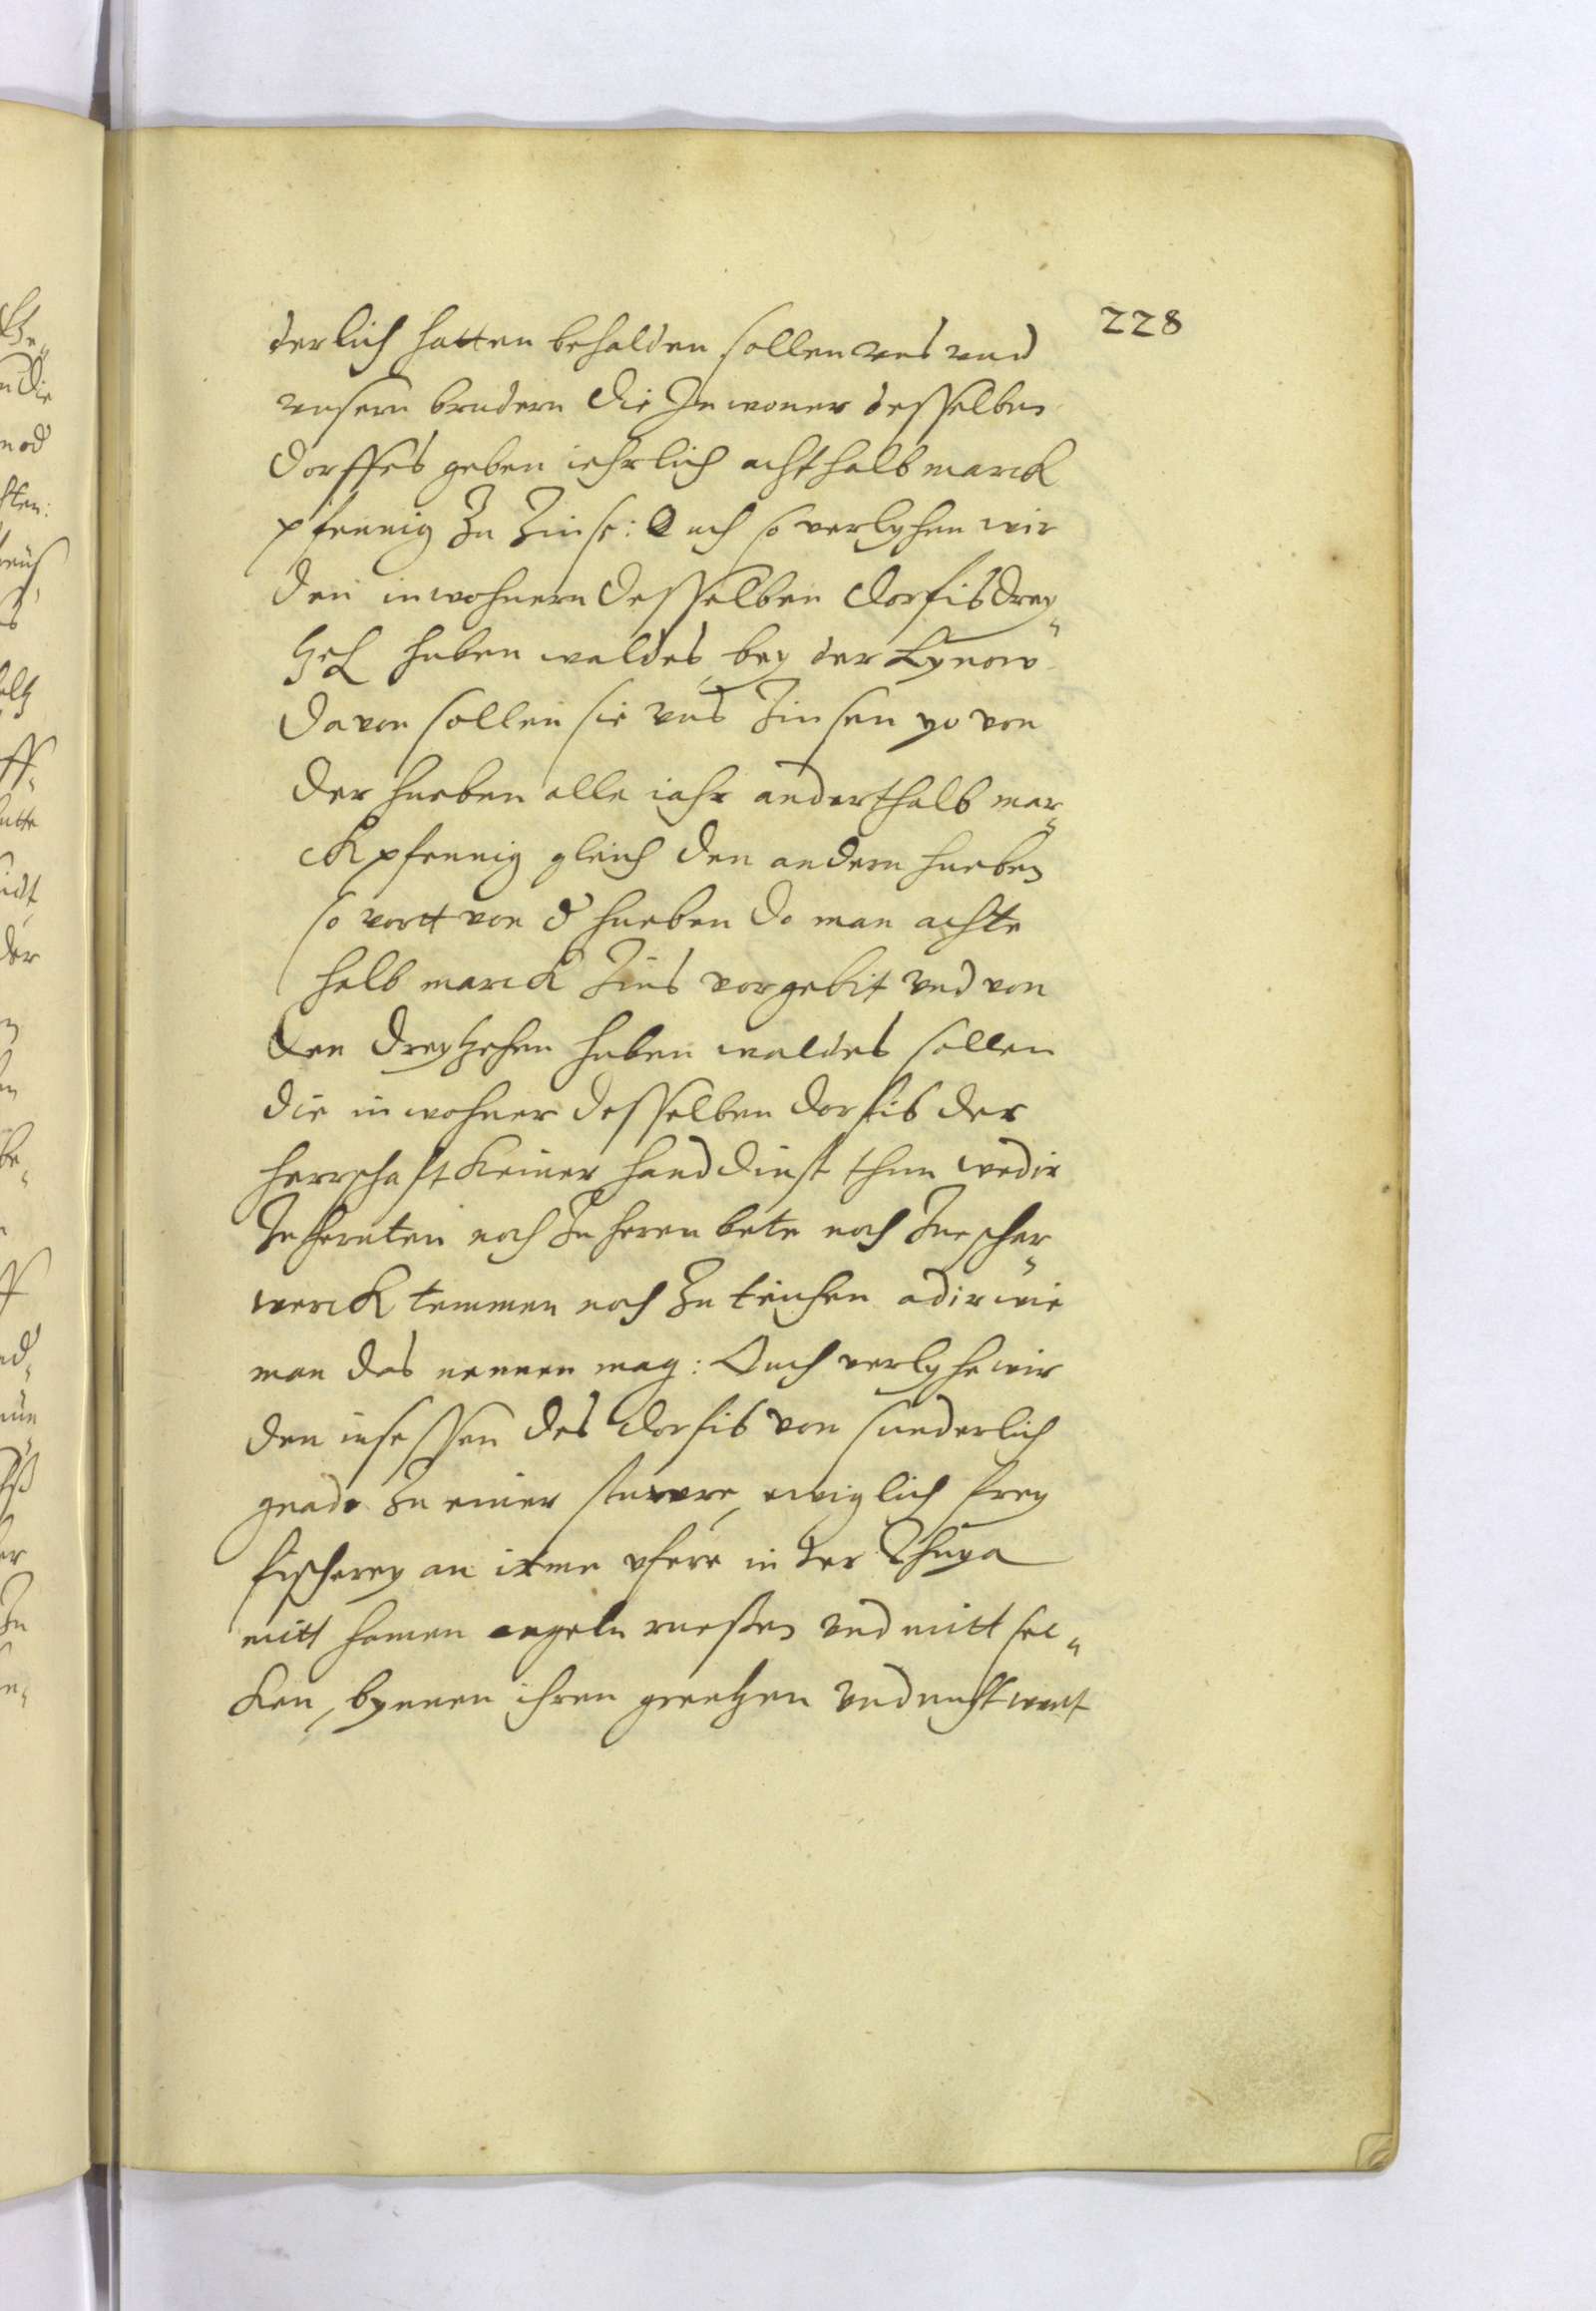 228
derlich hatten behalden sollen uns und
unsern brudern die Inwoner desselben
dorffes geben iehrlich achthalb marck
pfennig zu Zinse: Ouch so verlyhen wir
den inwohnern desselben dorfis drey„
tzeh huben waldes bey der Lynow
davon sollen sie uns Zinsen yo von
der hueben alle iahr anderthalb mar„
ck pfennig gleich den andern hueben
so vortt von d hueben do man achte
halb marck Zins vorgebit und von
den dreytzehen huben waldes sollen
die inwohner desselben dorfis der
herrschaft keiner handdinst thun wedir
In hernten noch In heren bete noch Inn schar„
werck temmen noch zu teichen adir wie
man das nennen mag: Ouch verlyhe wir
den insessen des dorfis von sunderlich
gnade zu einer stuwre ewiglich frey
fischerey an irme ufere in der Thuya
mitt hamen angeln wasten und mitt sec„
ken, bynnen ihren grentzen und nicht weit